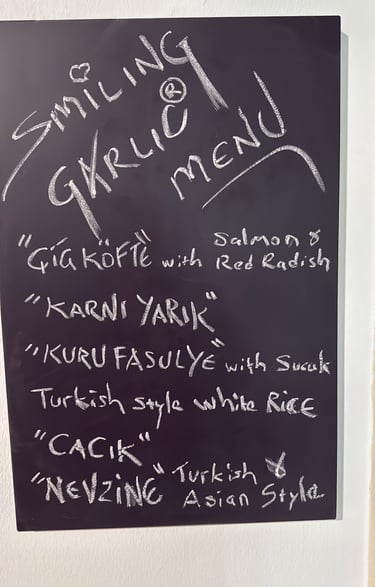 SMILING
GARLIC®
MENU
"ÇİĞ KÖFTE" with Salmon &
Red Radish
"KARNI YARIK"
"KURU FASULYE" with Sucuk
Turkish style white RICE
"CACIK"
"NEVZİNE" Turkish &
Asian Style